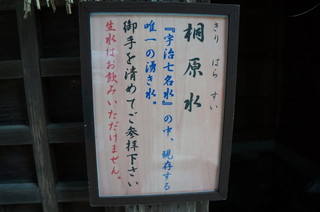 きり はら すい
桐原水
『宇治七名水』の中、現存する
唯一の湧き水。
御手を清めてご参拝下さい
生水はお飲みいただけません。